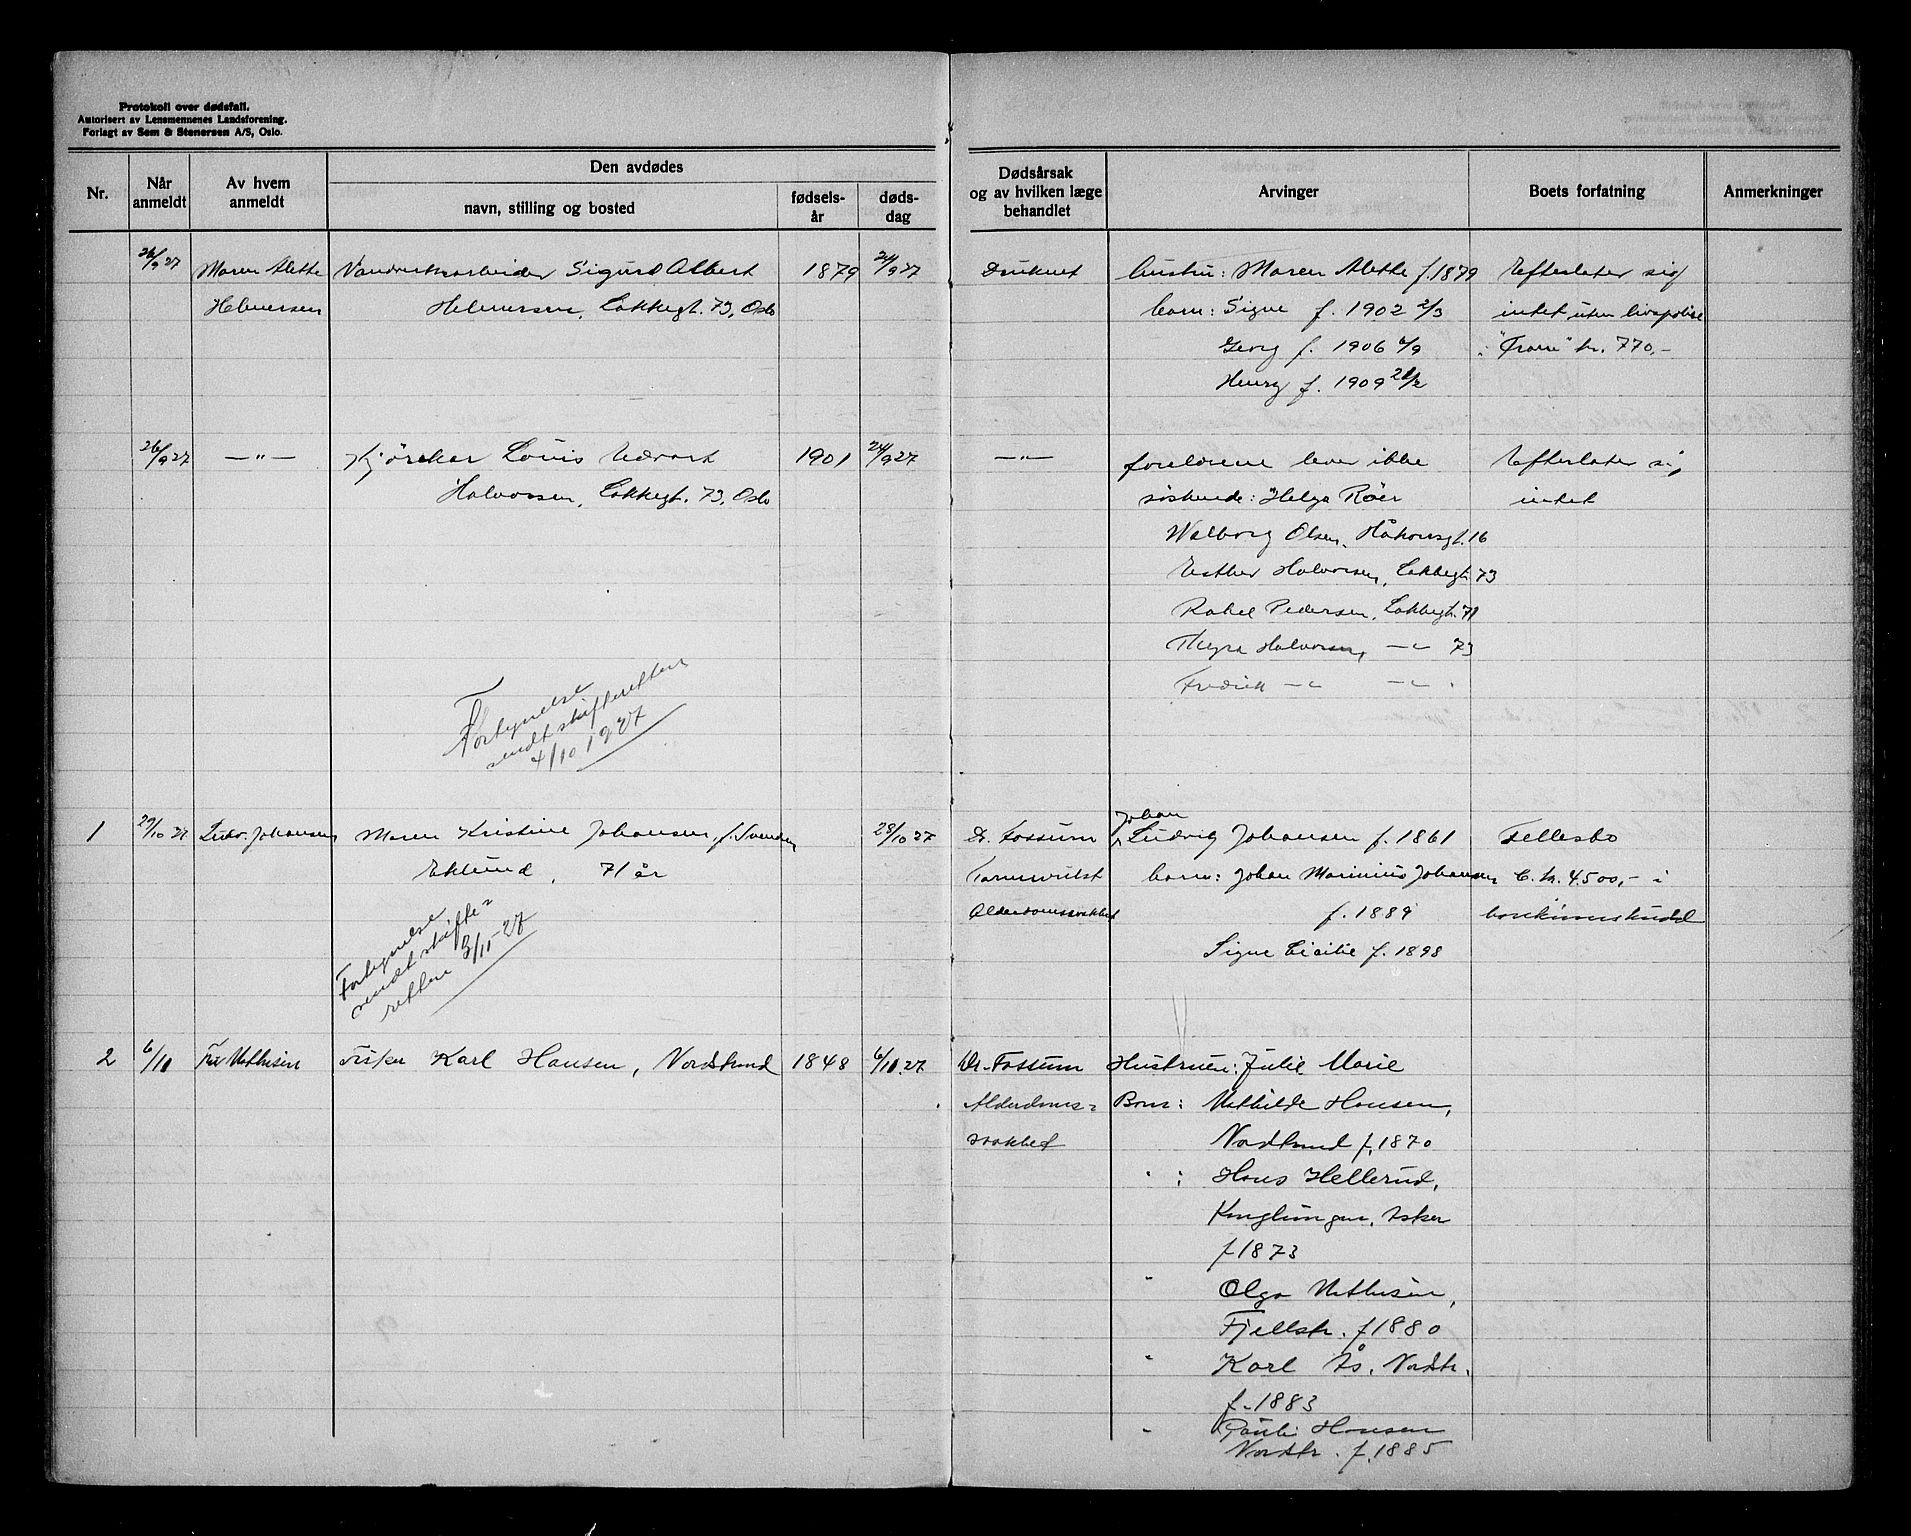 Protokoll over dødsfall.
Autorisert av Lensmennenes Landsforening.
Forlagt av Sem & Stenersen A/S, Oslo.
Nr.
Når anmeldt
Av hvem anmeldt
Den avdødes
navn, stilling og bosted
fødselsår
dødsdag
Dødsårsak og av hvilken læge behandlet
Arvinger
Boets forfatning
Anmerkninger
26/9 27 Maren Alette Sigurd Albert 1879 24/9 27 Druknet hustru: Maren Alette f. 1879 Efterlater sig
Helmersen Helmersen, Lakkegt. 73, Oslo barn: Signe f. 1902 2/3 intet uten livspolise
Georg f. 1906 6/9 i "Fram" kr. 770,-
Henry f. 1909 21/2
26/9 27 —"— Kjørekar Louis Edvart 1901 24/9 27 —"— foreldrene lever ikke Efterlater sig
Halvorsen, Lakkegt. 73, Oslo søskende: Helga Röer intet
Walborg Olsen, Håkonsgt. 16
Esther Halvorsen, Lakkegt. 73
Rakel Pedersen, Lakkegt. 71
Thyra Halvorsen, —"— 73
Fredrik —"— —"—
Fortegnelse
sendt skifteretten
4/10 1927
1 29/10 27 Ludv. Johansen Maren Kristine Johansen, f. Svendsen 28/10 27 Dr. Fossum Johan Ludvig Johansen f. 1861 Fellesbo
Eklund, 71 år barn: Johan Marinius Johansen C. kr. 4500,- i
Alderdomssvakhet f. 1889
Signe Cicilie f. 1898
Fortegnelse
sendt skifte=
retten 3/11-27
2 6/11 Fru Mathisen Fisker Karl Hansen, Nordstrand 1848 6/11.27 Dr. Fossum Hustruen: Julie Marie
Alderdoms= Barn: Mathilde Hansen,
svakhet Nordstrand f. 1870
" : Hans Hellerud,
Asker
f 1873
" Olga Mathisen,
Fjellstr. f 1880
" Karl Ås, Nordstr.
f. 1883
" Pauli Hansen
Nordstr. f. 1885